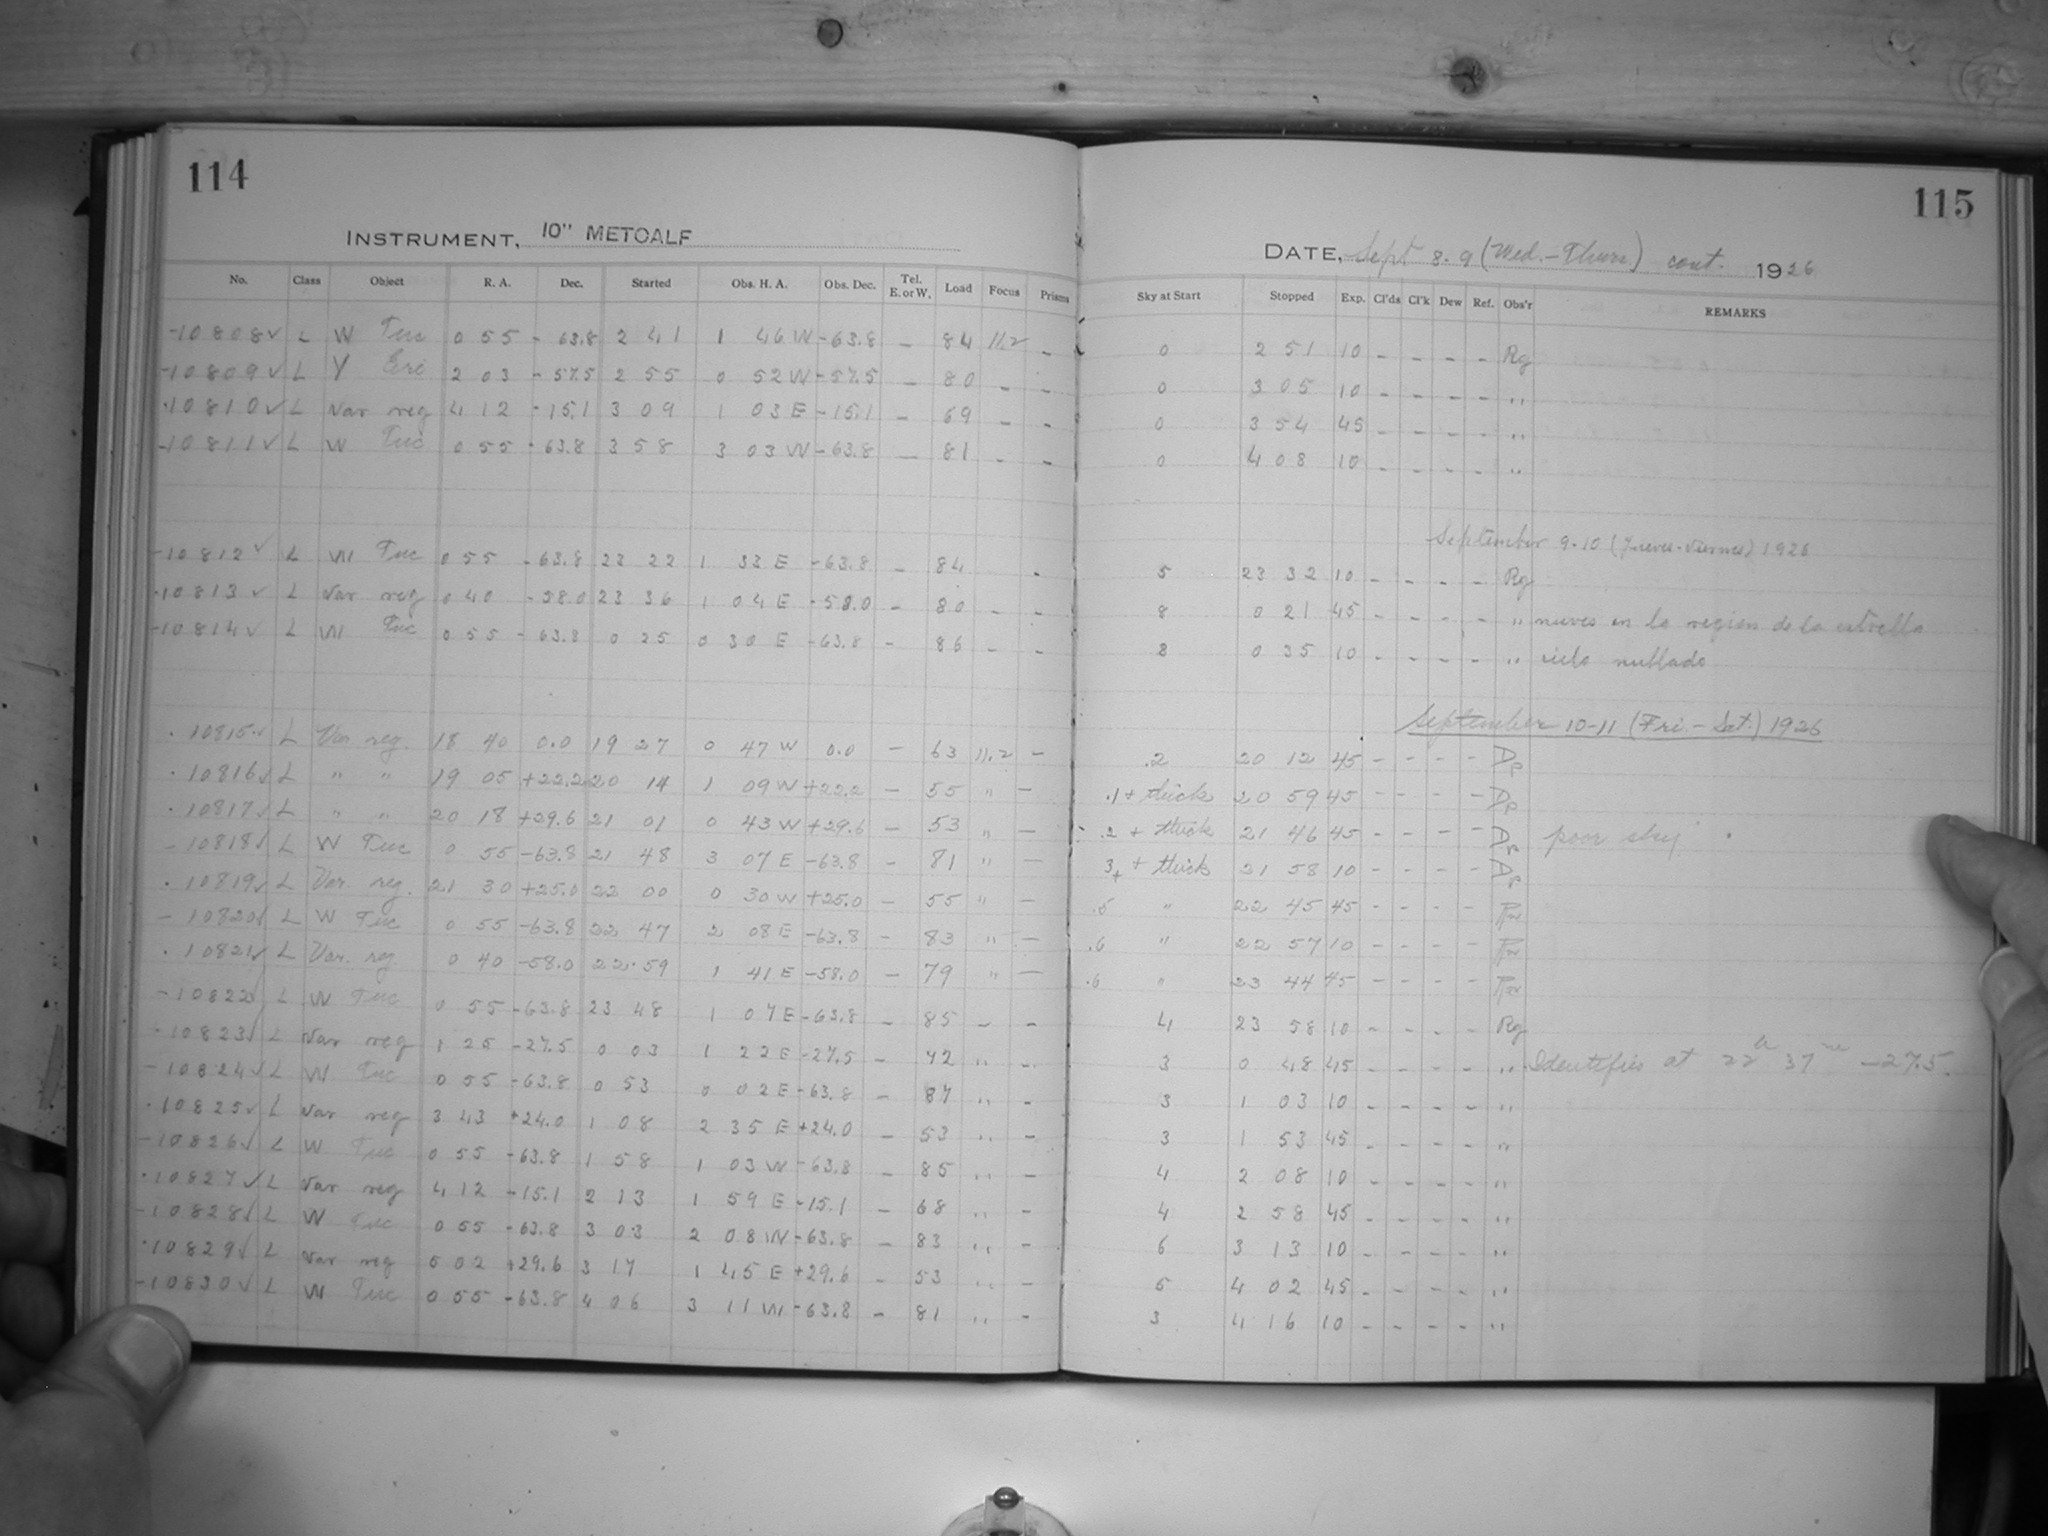 114
INSTRUMENT, 10" METCALF
No. Class Object R. A. Dec. Started Obs. H. A. Obs. Dec. Tel. E. or W. Load Focus Prisms
-10808✓ L W Tuc 0 55 - 63.8 2 41 1 46 W -63.8 - 84 11.2 -
-10809✓ L Y Eri 2 03 - 57.5 2 55 0 52 W -57.5 - 80 - -
·10810✓ L Var reg 4 12 -15.1 3 09 1 03 E -15.1 - 69 - -
-10811✓ L W Tuc 0 55 -63.8 3 58 3 03 W -63.8 - 81 - -
-10812✓ L W Tuc 0 55 -63.8 23 22 1 33 E -63.8 - 84 -
·10813✓ L Var reg 0 40 -58.0 23 36 1 04 E -58.0 - 80 - -
-10814✓ L W Tuc 0 55 -63.8 0 25 0 30 E -63.8 - 86 - -
·10815✓ L Var reg. 18 40 0.0 19 27 0 47 W 0.0 - 63 11.2 -
·10816✓ L " " 19 05 +22.2 20 14 1 09 W +22.2 - 55 " -
·10817✓ L " " 20 18 +29.6 21 01 0 43 W +29.6 - 53 " -
-10818✓ L W Tuc 0 55 -63.8 21 48 3 07 E -63.8 - 81 " -
·10819✓ L Var. reg. 21 30 +25.0 22 00 0 30 W +25.0 - 55 " -
-10820✓ L W Tuc 0 55 -63.8 22 47 2 08 E -63.8 - 83 " -
·10821✓ L Var. reg. 0 40 -58.0 22 59 1 41 E -58.0 - 79 " -
-10822✓ L W Tuc 0 55 -63.8 23 48 1 07 E -63.8 - 85 - -
·10823✓ L Var reg 1 25 -27.5 0 03 1 22 E -27.5 - 72 " -
-10824✓ L W Tuc 0 55 -63.8 0 53 0 02 E -63.8 - 87 " -
·10825✓ L Var reg 3 43 +24.0 1 08 2 35 E +24.0 - 53 " -
-10826✓ L W Tuc 0 55 -63.8 1 58 1 03 W -63.8 - 85 " -
·10827✓ L Var reg 4 12 -15.1 2 13 1 59 E -15.1 - 68 " -
-10828✓ L W Tuc 0 55 -63.8 3 03 2 08 W -63.8 - 83 " -
·10829✓ L Var reg 5 02 +29.6 3 17 1 45 E +29.6 - 53 " -
-10830✓ L W Tuc 0 55 -63.8 4 06 3 11 W -63.8 - 81 " -
115
DATE, Sept 8-9 (Wed.-Thurs) cont. 1926
Sky at Start Stopped Exp. Cl'ds Cl'k Dew Ref. Obs'r REMARKS
0 2 51 10 - - - - Rg
0 3 05 10 - - - - "
0 3 54 45 - - - - "
0 4 08 10 - - - - "
September 9-10 (Jueves-Viernes) 1926
5 23 32 10 - - - - Rg
8 0 21 45 - - - - " nuves en la region de la estrella
8 0 35 10 - - - - " cielo nublado
September 10-11 (Fri.-Sat.) 1926
.2 20 12 45 - - - -
.1 + thick 20 59 45 - - - -
.2 + thick 21 46 45 - - - - poor sky
3 + thick 21 58 10 - - - -
.5 " 22 45 45 - - - -
.6 " 22 57 10 - - - -
.6 " 23 44 45 - - - -
4 23 58 10 - - - - Rg
3 0 48 45 - - - - " Identifies at 22h 37m -27.5.
3 1 03 10 - - - - "
3 1 53 45 - - - - "
4 2 08 10 - - - - "
4 2 58 45 - - - - "
6 3 13 10 - - - - "
5 4 02 45 - - - - "
3 4 16 10 - - - - "